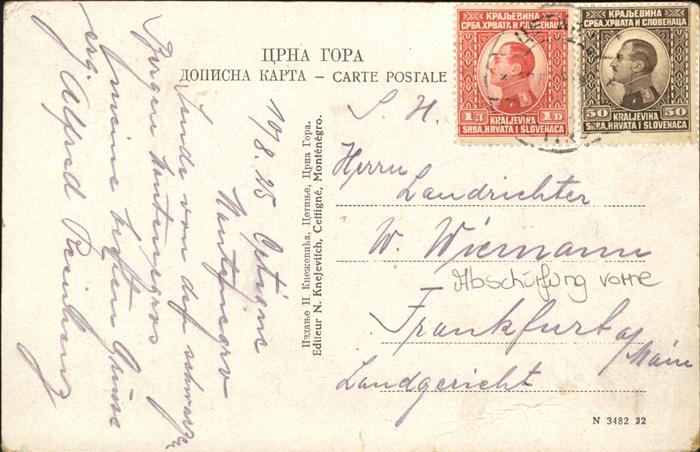 ЦРНА ГОРА
ДОПИСНА КАРТА – CARTE POSTALE
КРАЉЕВИНА
СРБА, ХРВАТА И СЛОВЕНАЦА
1 Д 1 D
KRALJEVINA
SRBA, HRVATA I SLOVENACA
КРАЉЕВИНА
СРБА, ХРВАТА И СЛОВЕНАЦА
50 50
KRALJEVINA
SRBA, HRVATA I SLOVENACA
10/8.25 Cetigne
Sende von den schwarzen
Bergen Montenegros
meine besten Grüsse
erg. Alfred
Издање Н. Кнежевића, Цетиње, Црна Гора.
Editeur N. Knejevitch, Cettigné, Monténégro.
S. H.
Herrn
Landrichter
W. Wiemann
Abschürfung vorne
Frankfurt a/Main
Landgericht
N 3482 22